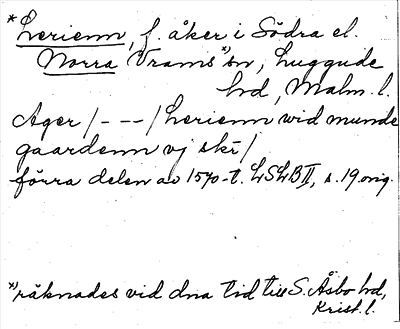 *Lerienn, f. åker i Södra el.
Norra Vrams*) sn, Luggude
hd, Malm. l.
Ager/- - -/Lerienn wid munde
gaardenn vj skī/
förra delen av 1570-t. LSLB II, s. 19 orig.
*) räknades vid dna tid till S. Åsbo hd,
Krist. l.